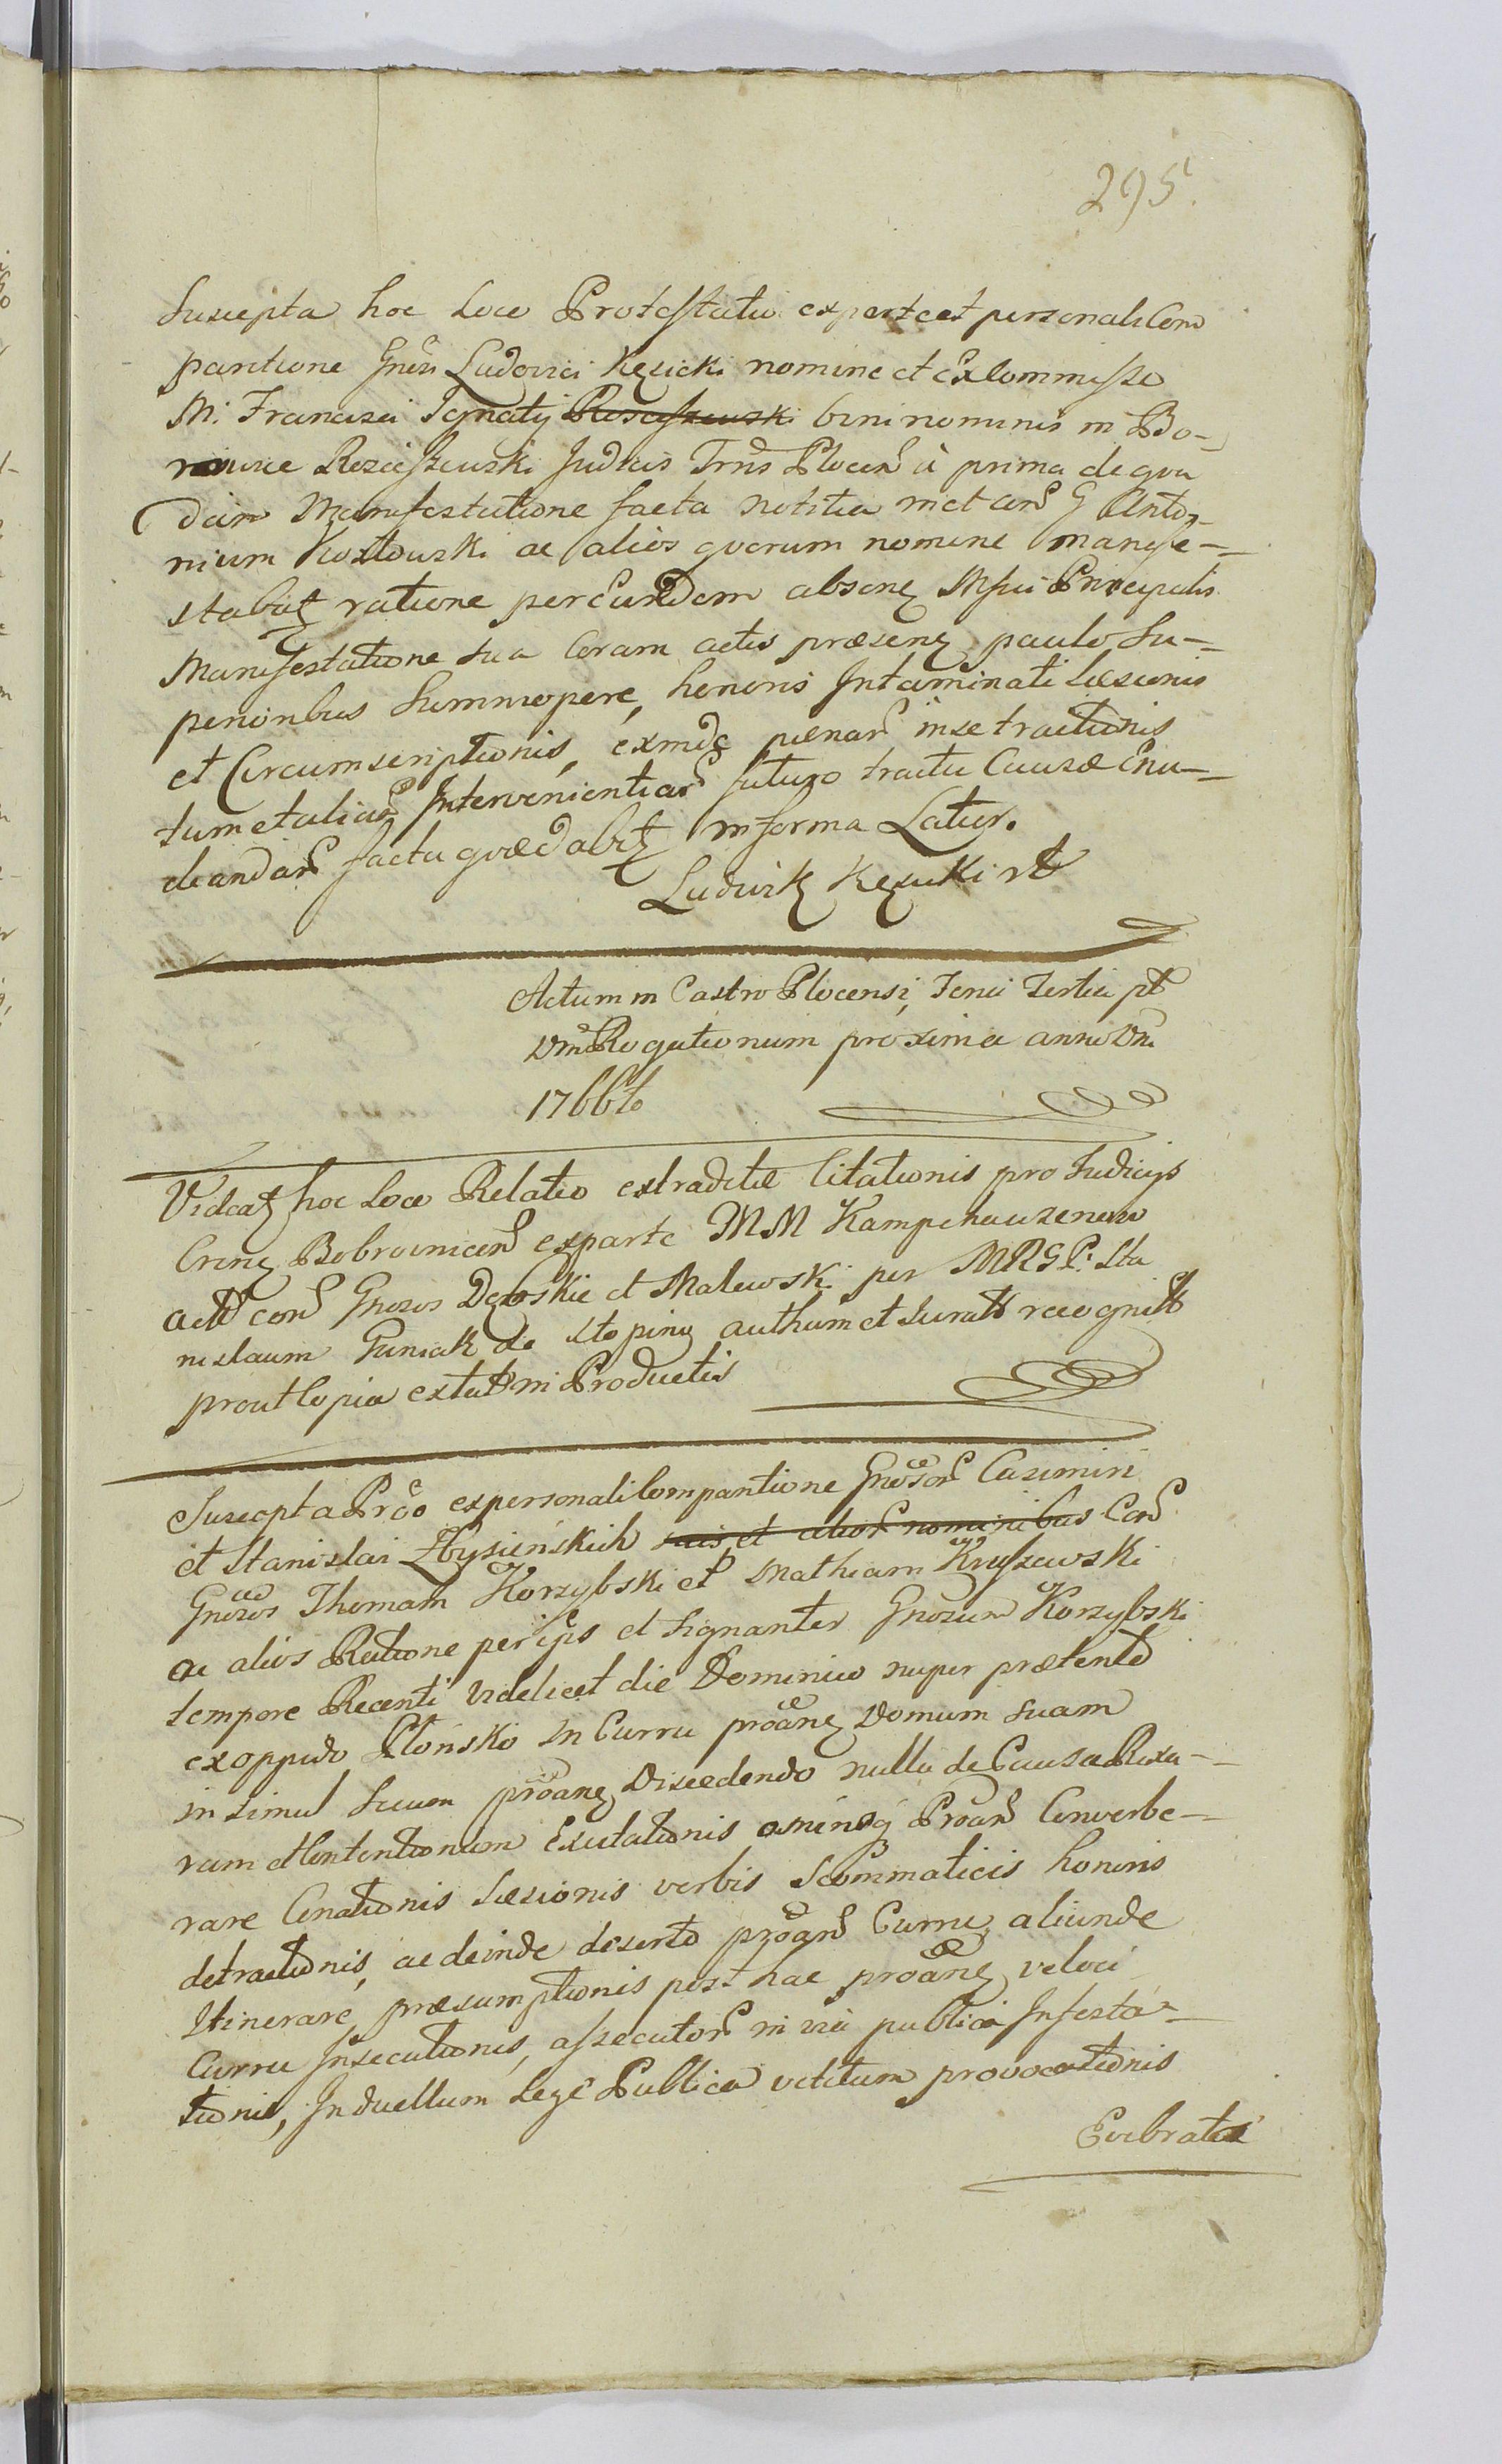 295.
Suscepta hoc Loco Protestatio ex parte et personali Com
paritione Gnrsi Ludovici Kęsicki nomine et ex Commisso
M. Francisci Ignatij Rosciszewski bini nominis in Bo-
rowice Rosciszewski Judicis Trris Plocen à prima de qua
dam Manifestatione facta notitia met con G Anto-
nium Kozłowski ac alios quorum nomine manife-
stabat ratione per eundem absen M sui Principalis
Manifestatione sua Coram actis præsen paulo Su-
perioribus Summopere, honoris Intaminati Læsionis
et Circumscriptionis, exinde pænar in se tractionis
tum et aliar Intervenientiar futuro tractu Causæ Enu-
cleandar facta quæ dabit in forma Latior.
Ludwik Kęsicki
Actum in Castro Plocensi, Feria Tertia pt
Dmcã Rogationum proxima anno Dni
1766to
Videat hoc Loco Relatio extraditæ Citationis pro Judicijs
Bobrovnicen ex parte MM Kampenhauzenow
con Gnrsos Dębskie et Malewski per MRGP. Sta
nislaum Guniak de Stopin authum et Jurat recognit
prout Copia extat in Productis
Suscepta Prõo ex personali Comparitione Gnrsor Casimiri
et Stanislai Zbysieńskich suis et alior nominibus Con
Gnrsos Thomam Korzybski et Mathiam Kryszewski
ac alios Ratione per ipsos et Signanter Gnrsum Korzybski
tempore Recenti videlicet die Dominico nuper prætento
ex oppido Płońsko in Curru proan Domum suam
in simul secum proan Discedendo nulla de Causa Rixa-
rum et Contentionum Excitationis proan Converbe-
rare Conationis Læsionis verbis Scommaticis honoris
detractionis, ac deinde deserto proan Curru, aliunde
Itinerare præsumptionis post hac proan veloci
Curru Insecutionis, assecutor in via publica Infesta-
tionis, In duellum Lege Publica vetitum provocationis